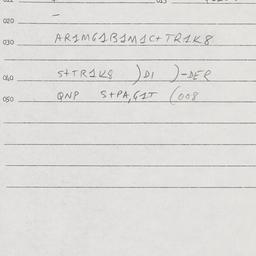 020 -
030 AR1MG1B1M1C+TR1K8
040 S+TR1K8 )DI )-DER
050 QNP S+PA,G1T (008